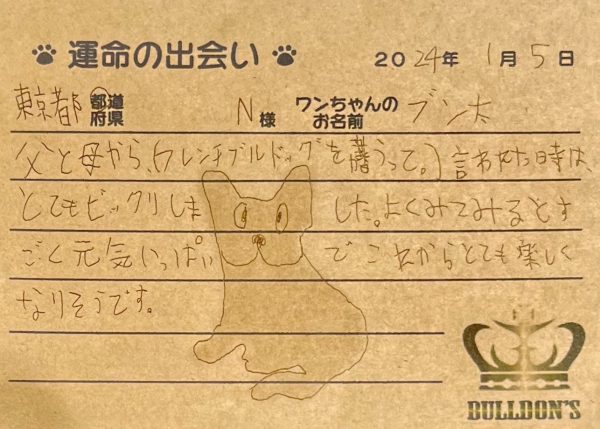 運命の出会い 2024年 1月 5日
東京都 都道府県 N様 ワンちゃんのお名前 ブン太
父と母から、「フレンチブルドッグを買うって。」言われた時は、
とてもビックリしました。よくみてみるとす
ごく元気いっぱいでこれからとても楽しく
なりそうです。
BULLDON'S